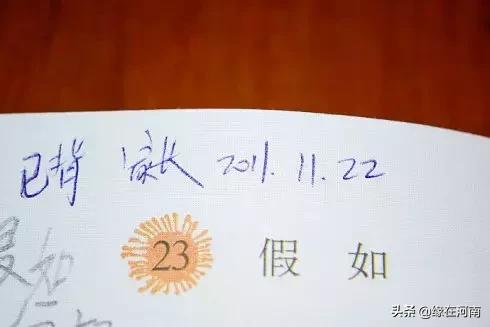 已背 家长 2011.11.22
23 假如
头条 @缘在河南